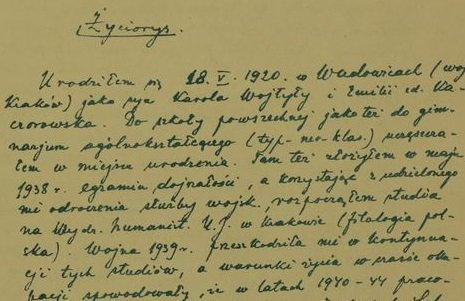 Życiorys.
Urodziłem się 18.V.1920. w Wadowicach (woj.
Kraków) jako syn Karola Wojtyły i Emilii z d. Ka-
czorowska. Do szkoły powszechnej jako też do gim-
nazjum ogólnokształcącego (typ-neo-klas.) uczęszcza-
łem w miejscu urodzenia. Tam też złożyłem w maju
1938 r. egzamin dojrzałości, a korzystając z udzielonego
mi odroczenia służby wojsk., rozpocząłem studia
na Wydz. humanist. U.J. w Krakowie (filologia pol-
ska). Wojna 1939 r. przeszkodziła mi w kontynua-
cji tych studiów, a warunki życia w czasie oku-
pacji spowodowały, iż w latach 1940-44 praco-